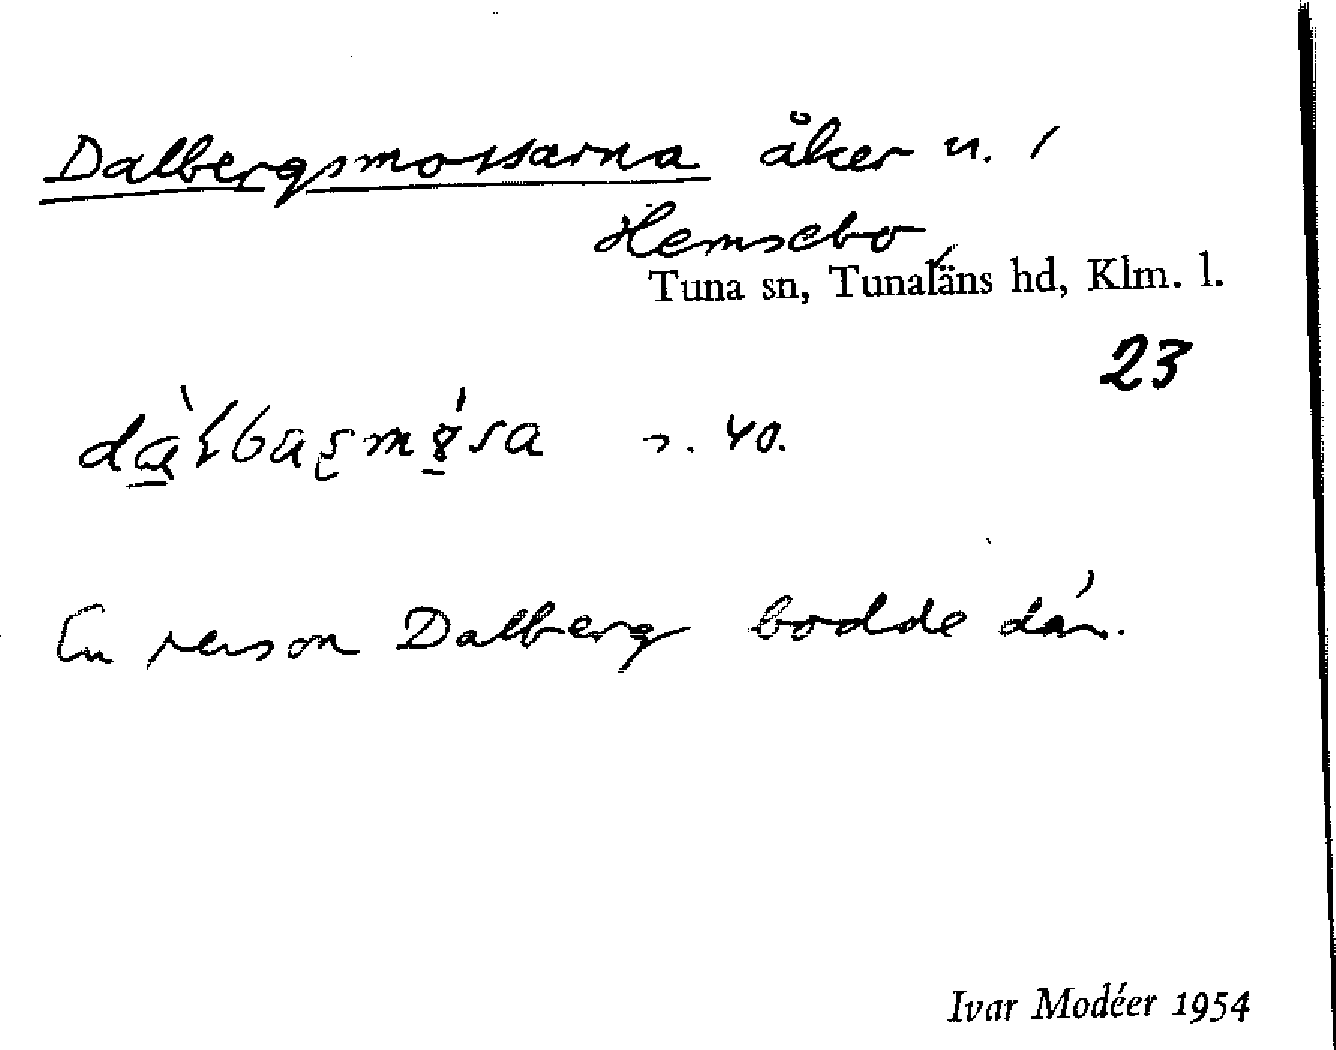 Dalbergsmossarna åker u. 1
Hemsebo
Tuna sn, Tunaläns hd, Klm. l.
23
s. 40.
En person Dalberg bodde där.
Ivar Modéer 1954